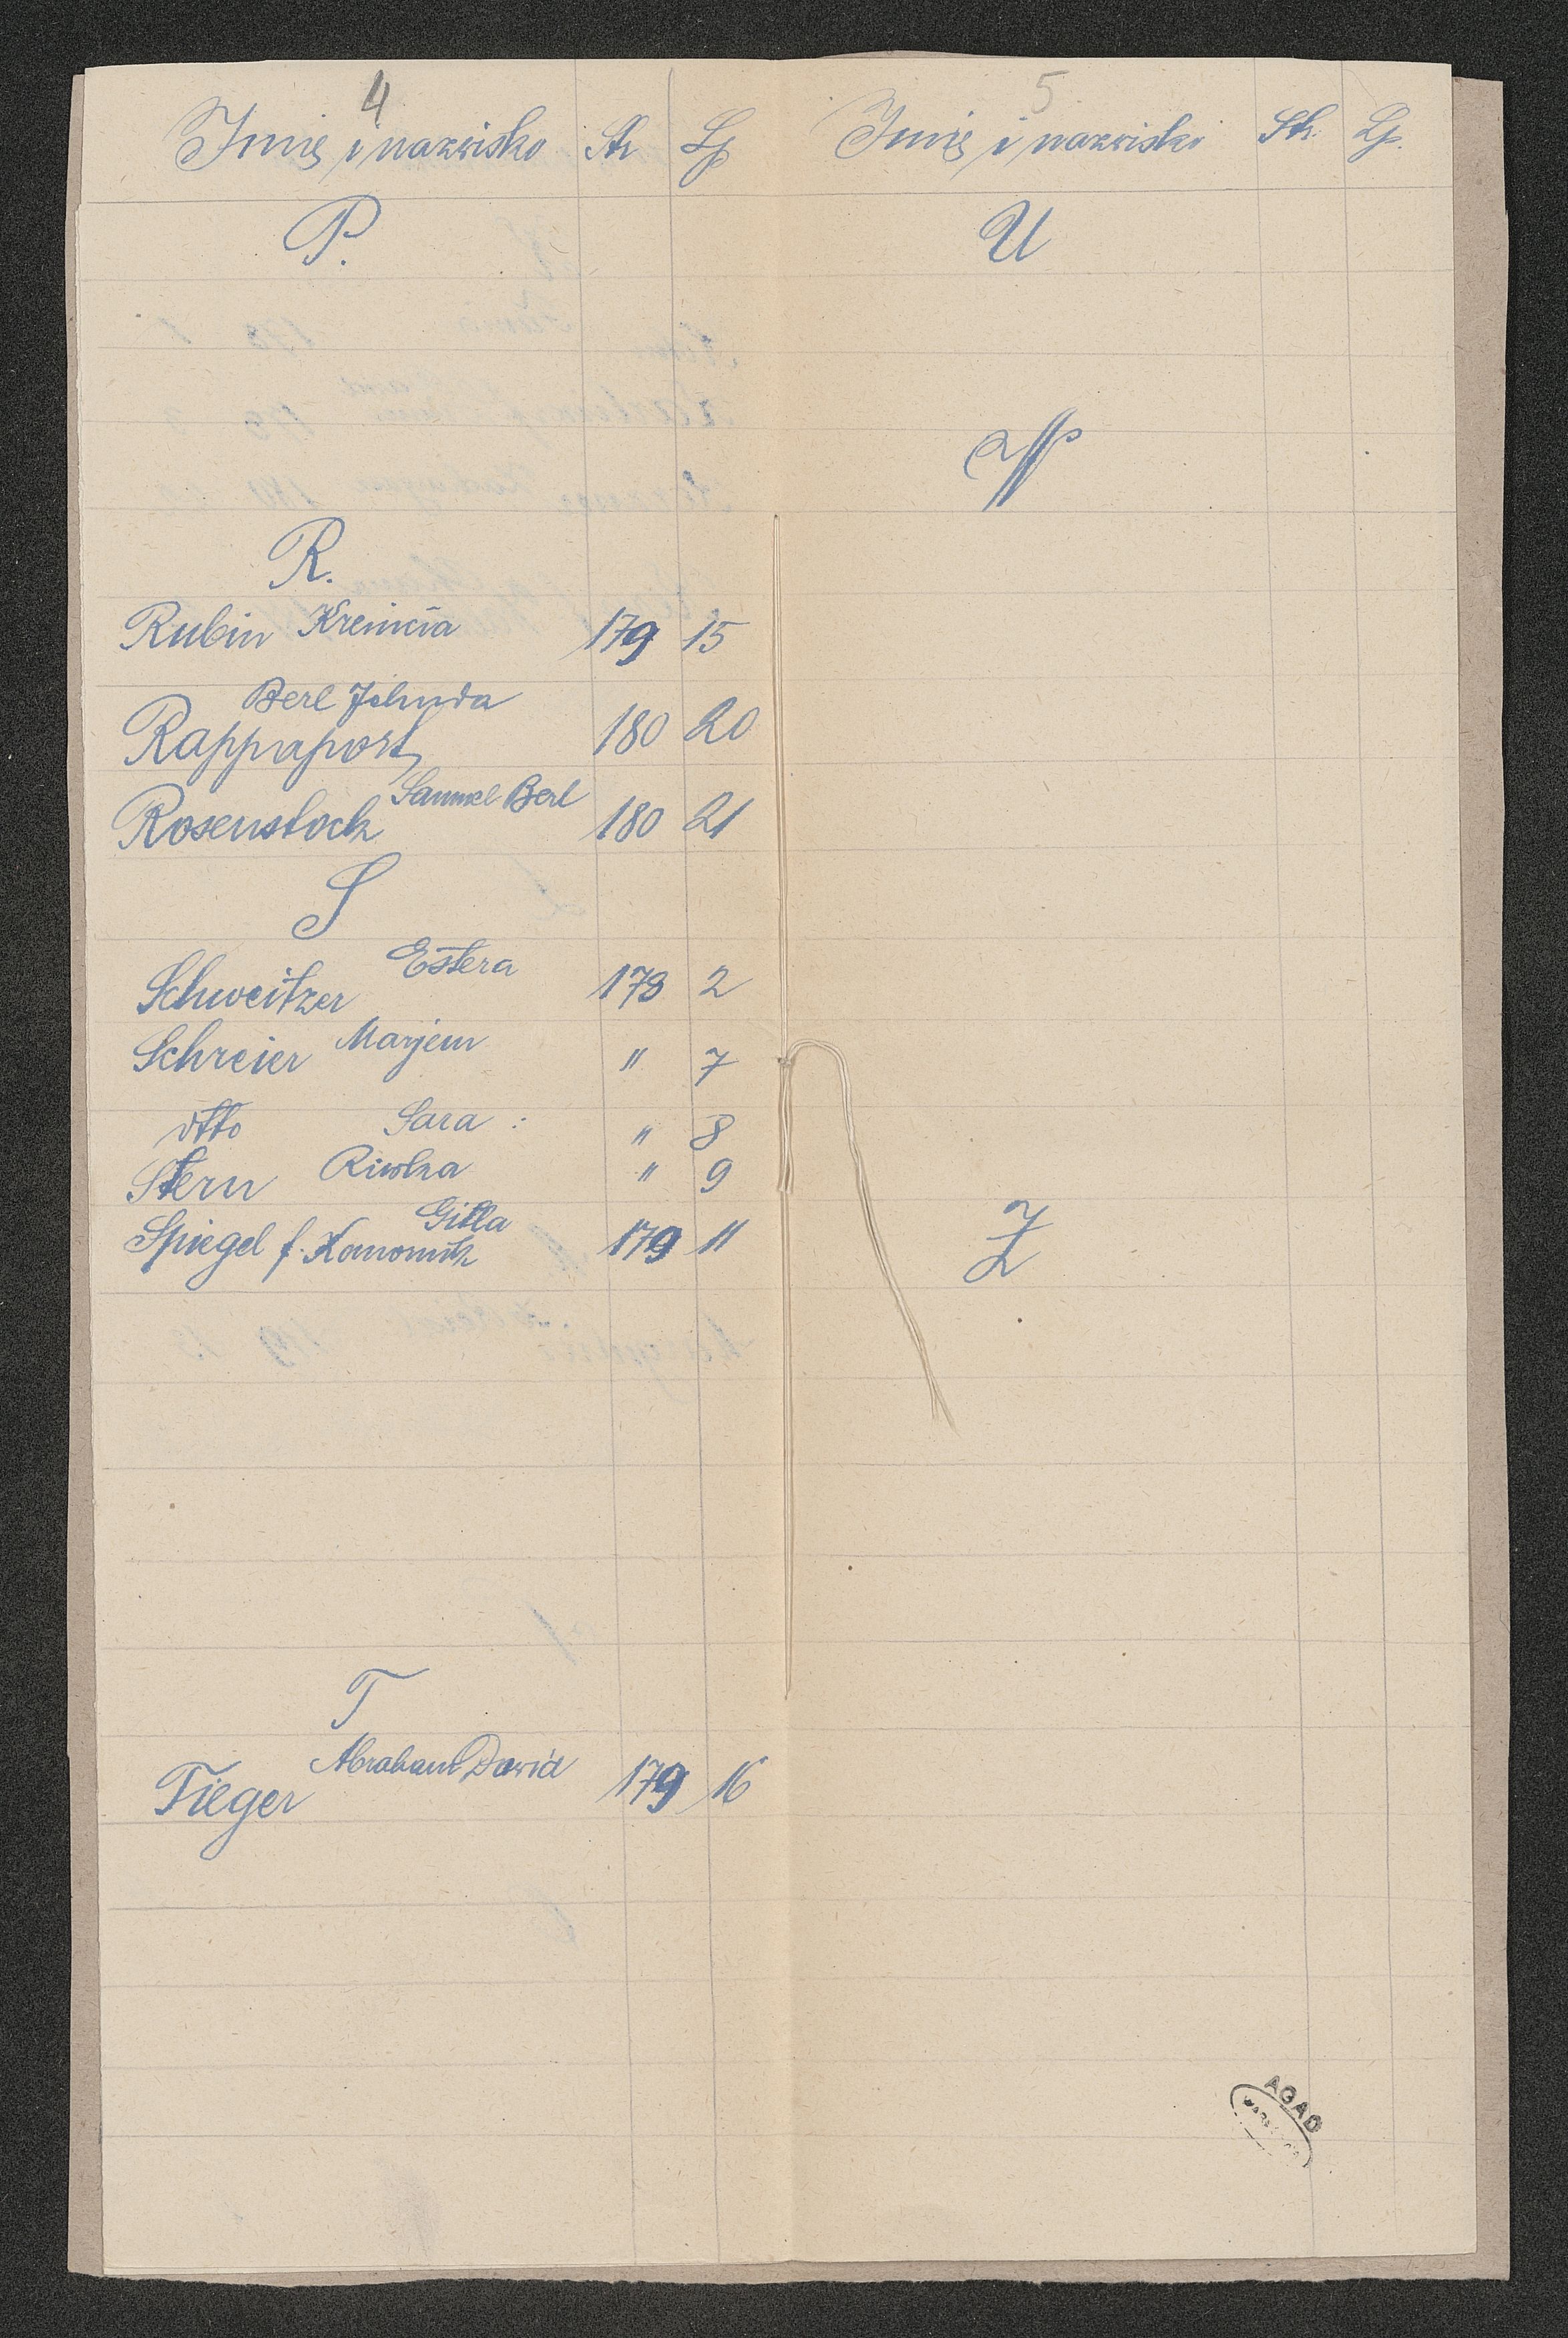 4
Imię i nazwisko Str Lp
P.
R.
Rubin Kreincia 179 15
Berl Jehuda
Rappaport 180 20
Samuel Berl
Rosenstock 180 21
S
Estera
Schweitzer 178 2
Schreier Marjem " 7
otto Sara : " 8
Stern Riwka " 9
Gitla
Spiegel f. 179 11
T
Abraham Dawid
Tieger 179 16
5
Imię i nazwisko Str. Lp.
U
W
Z
AGAD